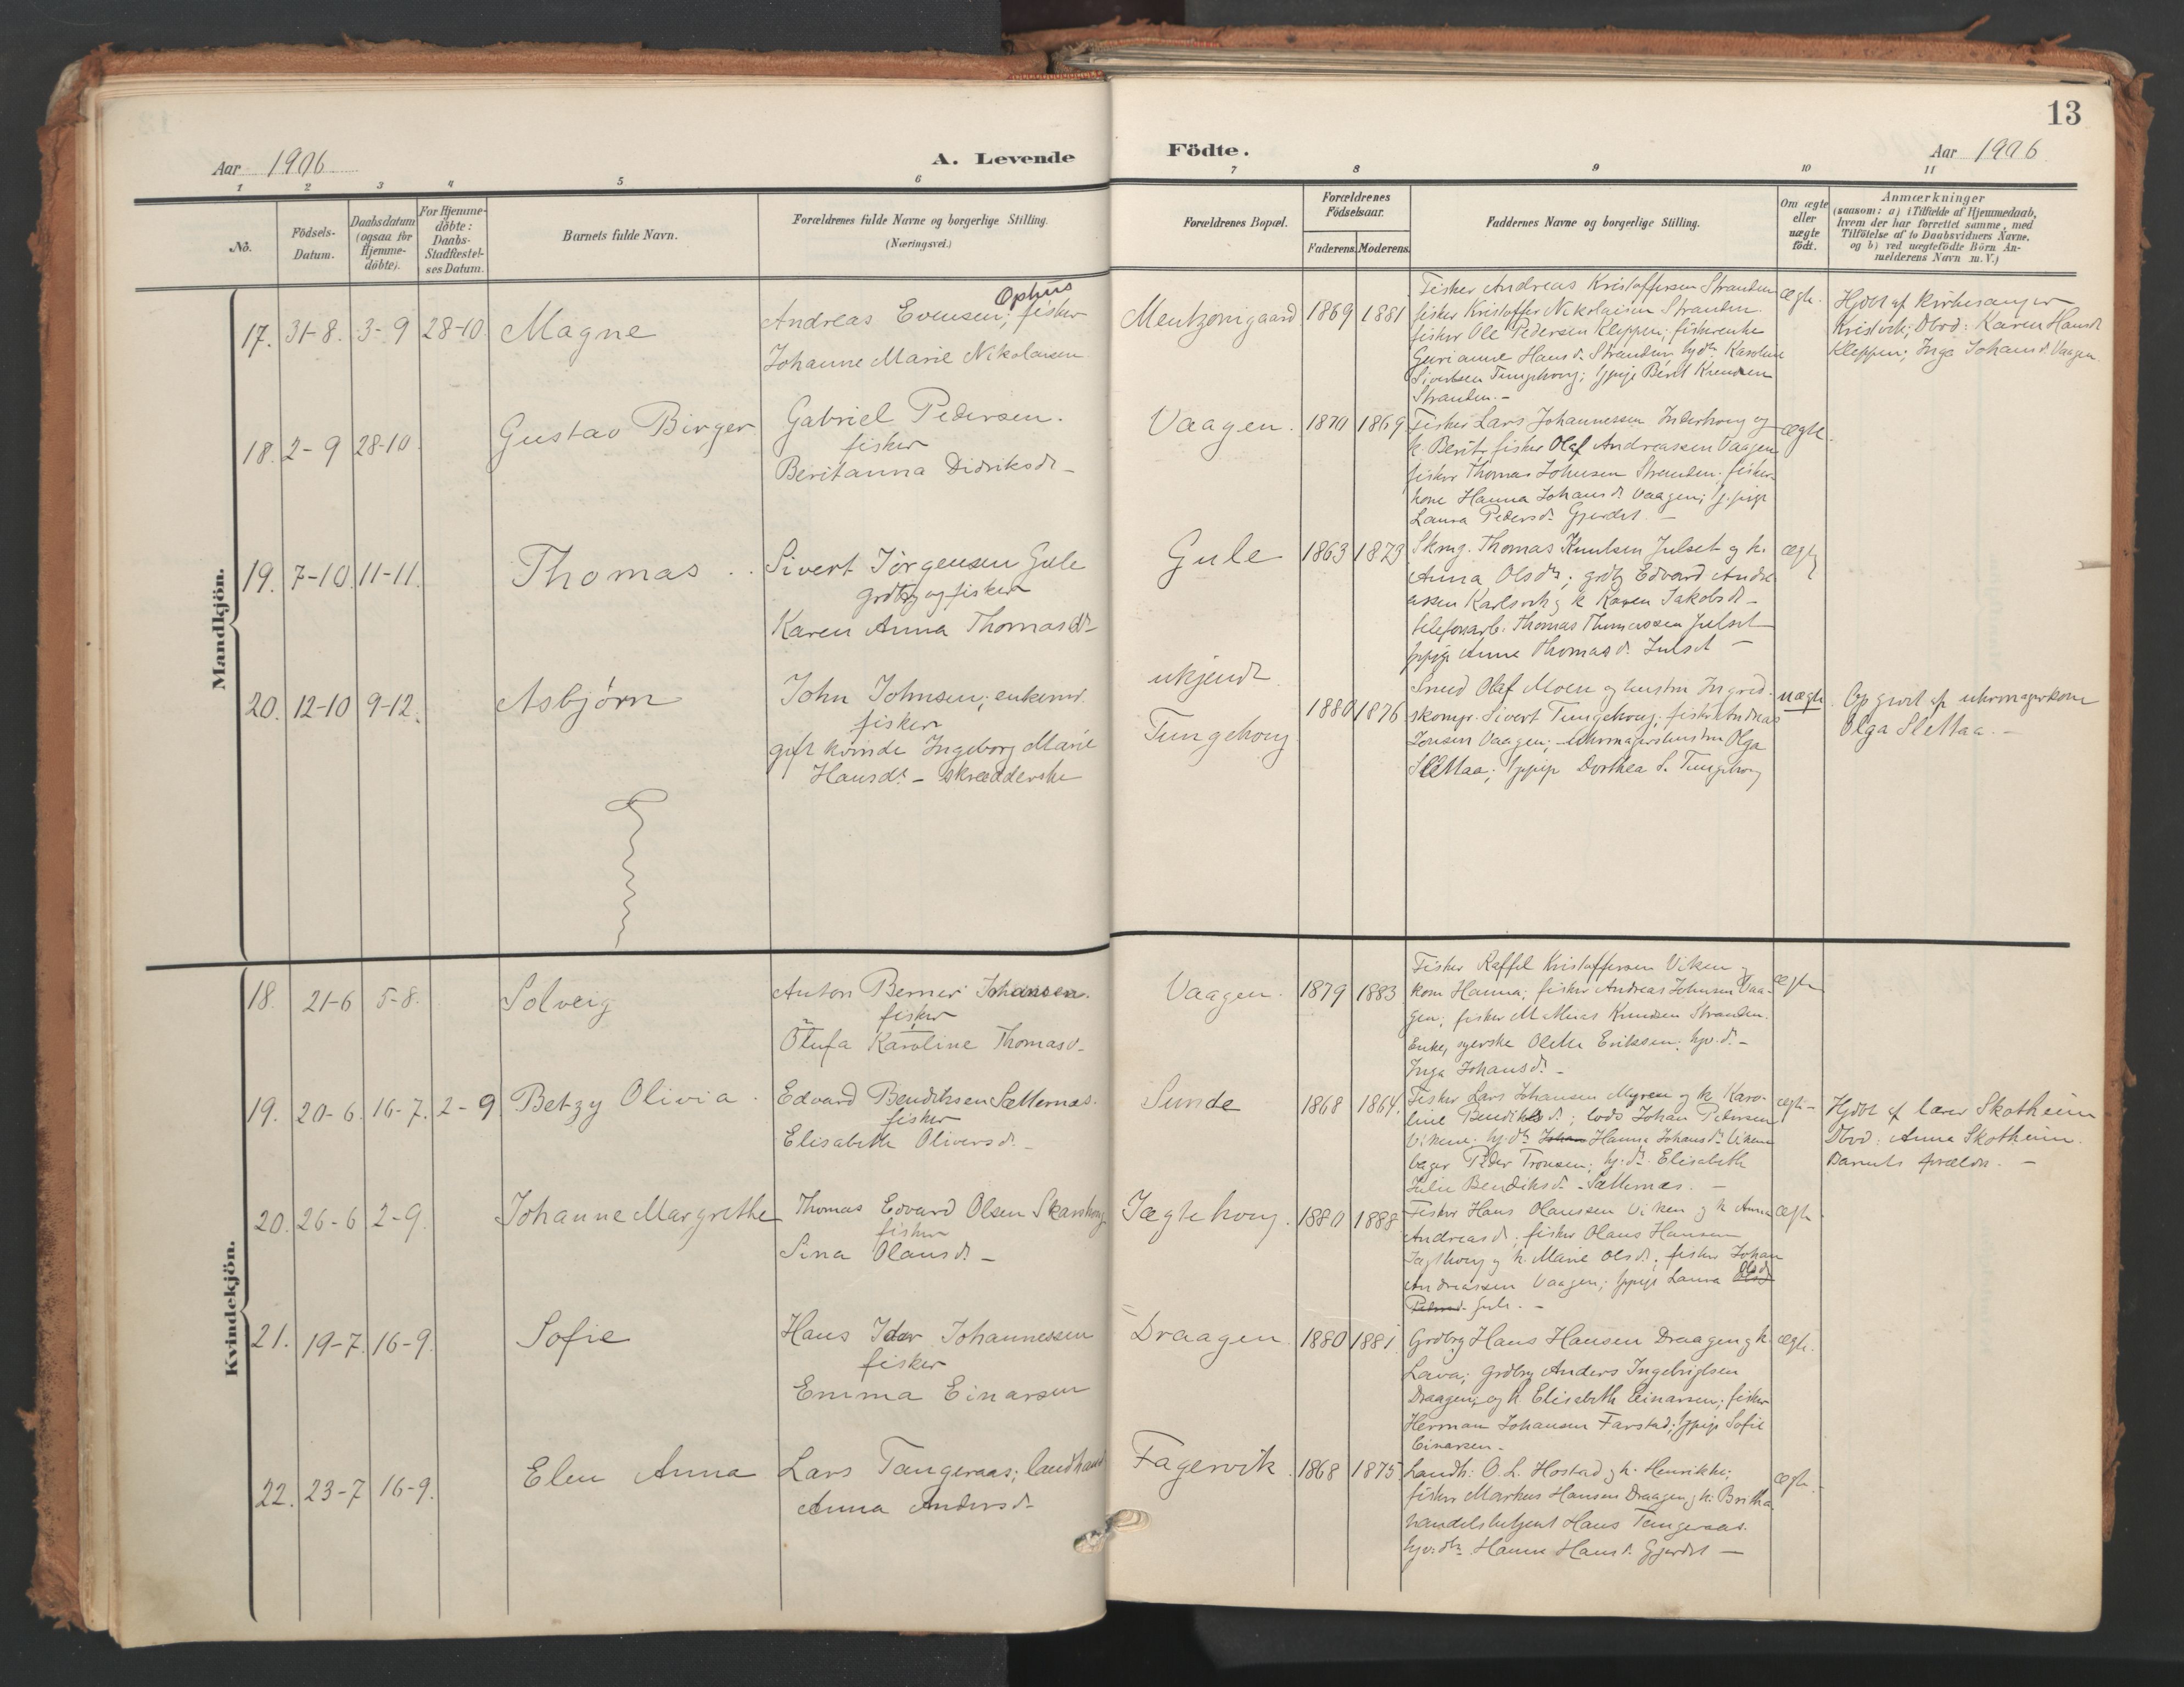 13
Aar 1906
A. Levende
Födte.
Aar 1906
1 2 3 4 5 6 7 8 9 10 11
No.
Födsels-Datum.
Daabsdatum (ogsaa for Hjemme-döbte).
For Hjemme-döbte: Daabs-Stadfæstel-ses Datum.
Barnets fulde Navn.
Forældrenes fulde Navne og borgerlige Stilling.
(Næringsvei.)
Forældrenes Bopæl.
Forældrenes Födselsaar.
Faderens. Moderens.
Faddernes Navne og borgerlige Stilling.
Om ægte eller uægte födt.
Anmærkninger
(saasom: a) i Tilfælde af Hjemmedaab,
hvem der har forrettet samme, med
Tilföielse af to Daabsvidners Navne,
og b) ved uægtefödte Börn An-
melderens Navn m. V.)
Mandkjön.
17. 31-8. 3-9 28-10 Magne
Andreas Evensen Ophus; fisker
Johanne Marie Nikolaisen
Mentzonigaard 1869 1881
Fisker Andreas Kristoffersen Stranden
fisker Kristoffer Nikolaisen Stranden
fisker Ole Pedersen Kleppen; fiskerenke
Gurianne Hansd. Stranden, hjdr. Karoline
Sivertsen Tungehoug; gpige Berit Knudsen
Stranden.-
ægte.
Hjdbt af kirkesanger
Kristvik; Dbvd: Karen Hansdr
Kleppen; Inga Johansdr. Vaagen.
18. 2-9 28-10. Gustav Birger
Gabriel Pedersen.
fisker
Beritanna Didriksdr-
Vaagen. 1870 1869
Fisker Lars Johannessen Inderhoug og
k. Berit; fisker Olaf Andreassen Vaagen
fisker Thomas Johnsen Stranden; fisker-
kone Hanna Johansdr. Vaagen; gpige
Laura Pedersdr. Gjerdet. -
ægte.
19. 7-10. 11-11. Thomas.
Sivert Jörgensen Gule
grdbg og fisker
Karen Anna Thomasdr-
Gule 1863 1873
Thomas Knutsen Julset og k.
Anna Olsdr; grdbg Edvard Andre
assen Karlsvik og k Karen Jakobsdr-
telefonarb. Thomas Thomassen Julset
gpige Anne Thomasdr. Julset -
ægte
20. 12-10 9-12. Asbjörn
John Johnsen; enkemd.
fisker
gift kvinde Ingeborg Marie
Hansdr. - skrædderske
ukjendt
Tungehoug 1880 1876
Smed Olaf Moen og hustru Ingrid
skompr. Sivert Tungehoug; fisker Andreas
Jonsen Vaagen; uhrmagerhustru Olga
Slettaa; gpige Dorthea S. Tungehoug
uægte.
Opgivet af uhrmagerkone
Olga Slettaa. -
Kvindekjön.
18. 21-6 5-8. Solveig
Anton Berner Johansen.
fisker
Olufa Karoline Thomasd-
Vaagen. 1879 1883
Fisker Raffel Kristoffersen Viken og
kone Hanna; fisker Andreas Johnsen Vaa-
gen; fisker Mathias Knudsen Stranden.
Enke, syerske Olette Eriksen; hjv. dr-
Inga Johansdr. -
ægte
19. 20-6. 16-7. 2-9 Betzy Olivia.
Edvard Bendiksen Sætternæs.
fisker
Elisabeth Oliversdr. -
Sunde 1868 1864.
Fisker Lars Johansen Myren og k. Karo-
line Bendiksdr; lods Johan Pedersen
Vikene. hj. dr. Hanna Johansdr. Vikene
bager Peder Tronsen; hj. dr. Elisabeth
Julie Bendiksdr. Sætternæs. -
ægte -
Hjdbt af lærer Skotheim
Dbvd: Anna Skotheim.
Barnets forældre. -
20. 26-6 2-9. Johanne Margrethe
Thomas Edvard Olsen Skarshoug
fisker
Sina Olausdr. -
Jægtehoug. 1880 1888
Fisker Hans Olaussen Viken og k Anna
Andreasdr; fisker Olaus Hansen
Jægthoug og k. Marie Olsdr; fisker Johan
Andreassen Vaagen; gpige Laura
Olsdr Gule. -
ægte.
21. 19-7. 16-9. Sofie
Hans Idar Johannessen
fisker
Emma Einarsen
Draagen. 1880 1881.
Grdbrg Hans Hansen Draagen og k.
Lava; grdbrg Anders Ingebrigtsen
Draagen; og k. Elisabeth Einarsen; fisker
Herman Johansen Farstad; gpige Sofie
Einarsen.
ægte.
22. 23-7 16-9. Elen Anna
Lars Tangeraas; landhand
Anna Andersdr-
Fagervik. 1868 1875
Landh. O. L. Hostad og k. Henrikke;
fisker Markus Hansen Draagen og k. Britha
handelsbetjent Hans Tangeraas.
hjv. dr. Hanne Hansdr. Gjerdet -
ægte.